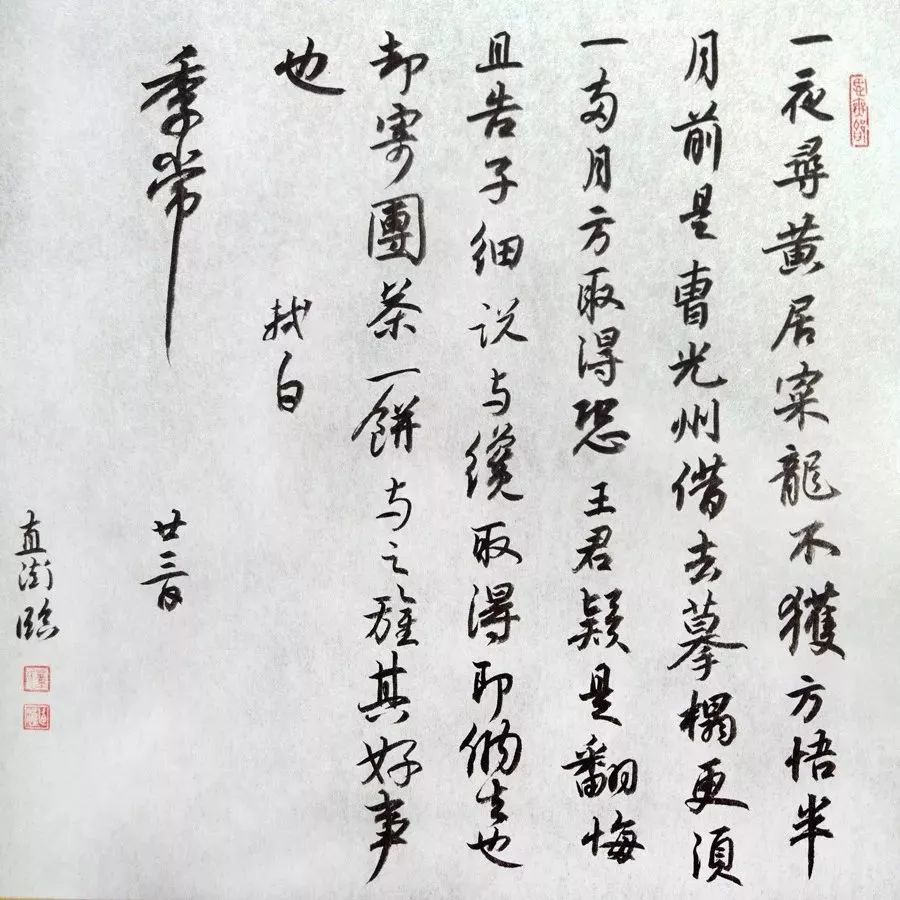 一夜尋黄居寀龍不獲方悟半
月前是曹光州借去摹榻更須
一兩月方取得恐王君疑是翻悔
且告子細說与纔取得即納去也
却寄團茶一餅与之旌其好事
也
軾白
季常
廿三日
直衛臨